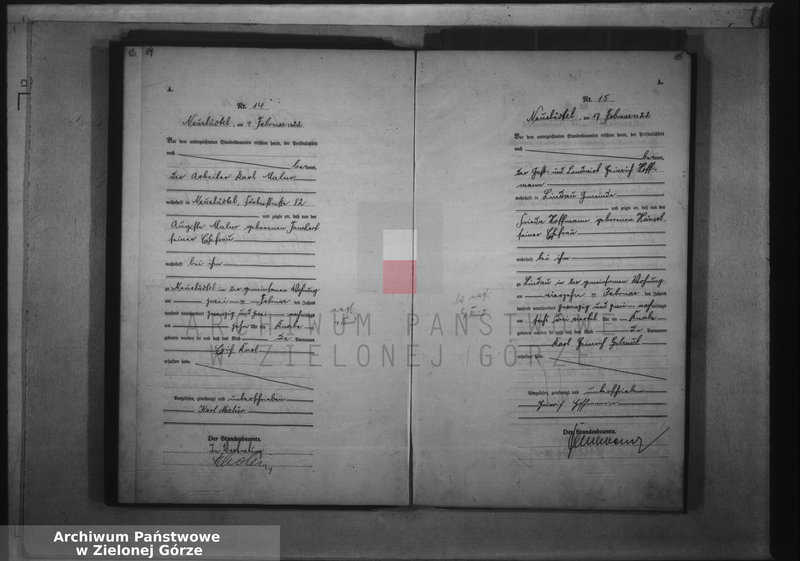 14
A.
Nr. 14
Neustädtel, am 4 Februar 1922
Vor dem unterzeichneten Standesbeamten erschien heute, der Persönlichkeit
nach
be kannt,
der Arbeiter Karl Malur
wohnhaft in Neustädtel, 82
und zeigte an, daß von der
Auguste Malur geborenen
seiner Ehefrau
wohnhaft bei ihm
zu Neustädtel in der gemeinsamen Wohnung
am zwei = Februar des Jahres
tausend neunhundert zwanzig und zwei nachmittags
um zehn Uhr ein Knabe
geboren worden sei und daß das Kind die Vornamen
Karl
erhalten habe.
Vorgelesen, genehmigt und unterschrieben
Karl Malur
Der Standesbeamte.
In Vertretung
A.
Nr. 15
Neustädtel, am 17 Februar 1922
Vor dem unterzeichneten Standesbeamten erschien heute, der Persönlichkeit
nach
be kannt,
der und Landwirt Heinrich Hoff-
mann
wohnhaft in Lindau Gemeinde
und zeigte an, daß von der
Frieda Hoffmann geborenen Hänsel
seiner Ehefrau
wohnhaft bei ihm
zu Lindau in der gemeinsamen Wohnung
am vierzehn = Februar des Jahres
tausend neunhundert zwanzig und zwei nachmittags
um fünf drei viertel Uhr ein Knabe
geboren worden sei und daß das Kind die Vornamen
Karl Heinrich Helmut
erhalten habe.
Vorgelesen, genehmigt und unterschrieben
Heinrich Hoffmann
Der Standesbeamte.
ARCHIWUM PAŃSTWOWE
W ZIELONEJ GÓRZE
Archiwum Państwowe
w Zielonej Górze